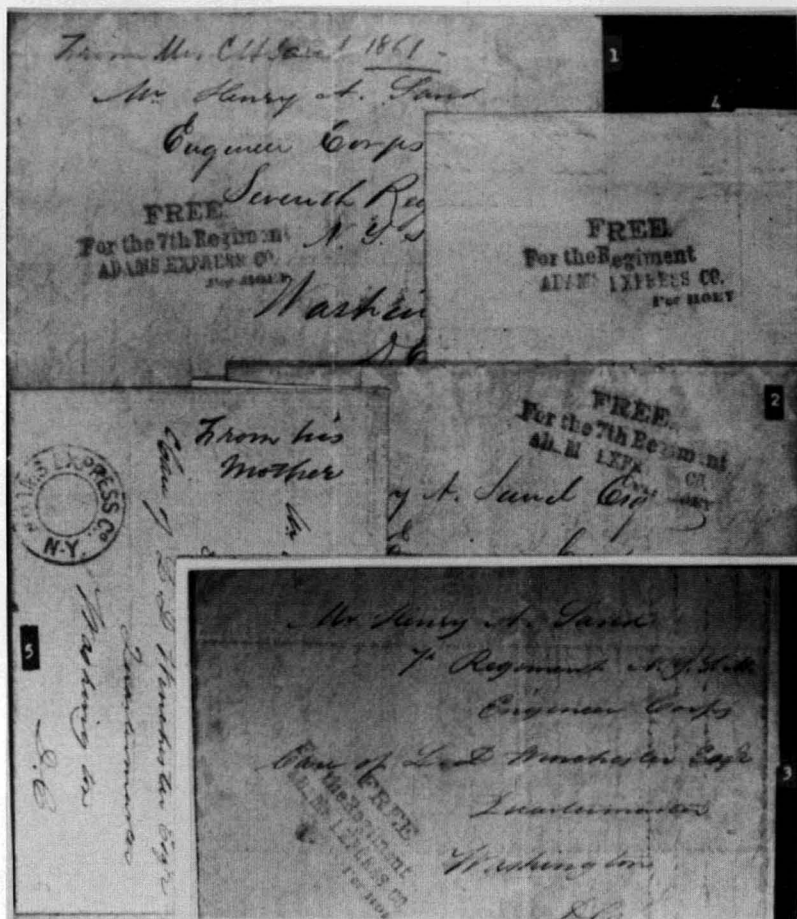 From Mrs C H Sand 1861 -
Mr Henry A. Sand
Engineer Corps
Seventh Reg
N. Y. S
Washin
D C
FREE
For the 7th Regiment
ADAMS EXPRESS CO.
Per HOEY
1
4
FREE
For the Regiment
ADAMS EXPRESS CO.
Per HOEY
2
FREE
For the 7th Regiment
ADAM EXPR CO.
HOEY
y A. Sand Esq
From his
Mother
EXPRESS Co
N-Y.
Care of L D Winchester Esqr
Quartermaster
Washington
D. C
5
Mr Henry A. Sand
7th Regiment N. Y. S. M.
Engineer Corps
Care of L. D Winchester Esqr
Quartermaster
Washington
D C
FREE
For the Regiment
ADAMS EXPRESS CO
Per HOEY
3